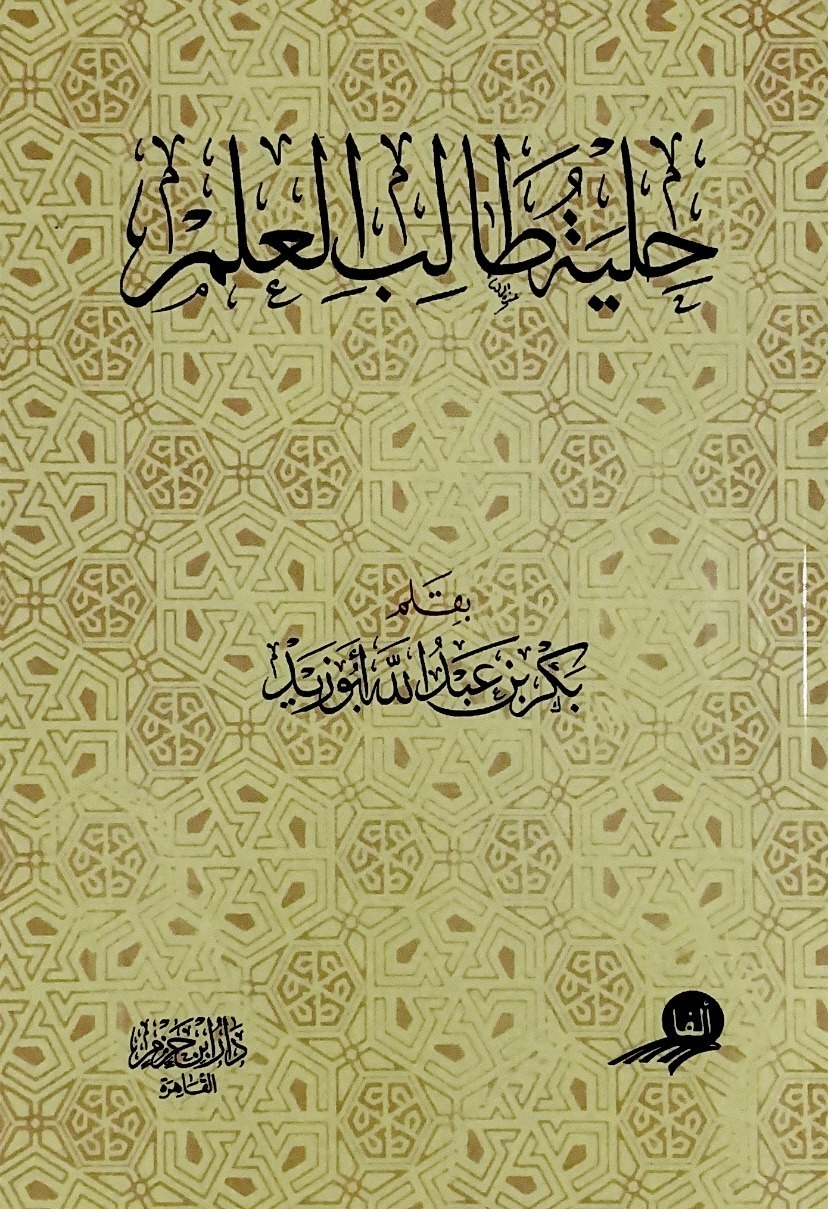 حِليَةُ طَالِبِ العِلمِ
بِقَلم
بَكر بن عَبدُ اللَّه أبُو زَيد
ألفا
دَارُ ابن حَزم
القَاهِرَة